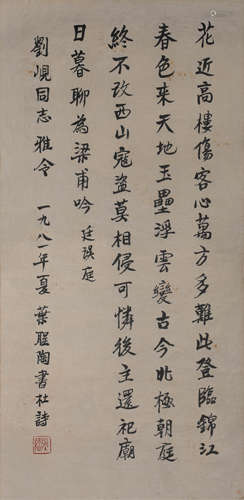 花近高樓傷客心萬方多難此登臨錦江
春色來天地玉壘浮雲變古今北極朝庭
終不改西山寇盜莫相侵可憐後主還祀廟
日暮聊為梁甫吟 廷誤庭
劉峴同志雅令 一九八一年夏 葉聖陶書杜詩